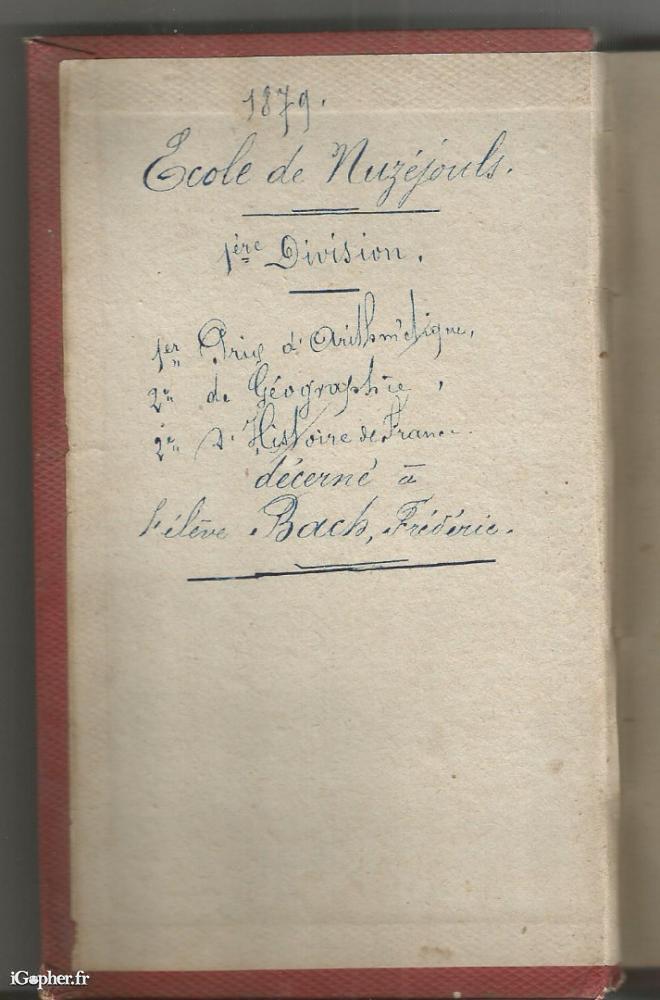 1879.
Ecole de Nuzéjouls.
1ère Division.
1er Prix d'Arithmétique,
2e de Géographie,
2e d'Histoire de France
décerné à
l'élève Bach, Frédéric.
iGopher.fr